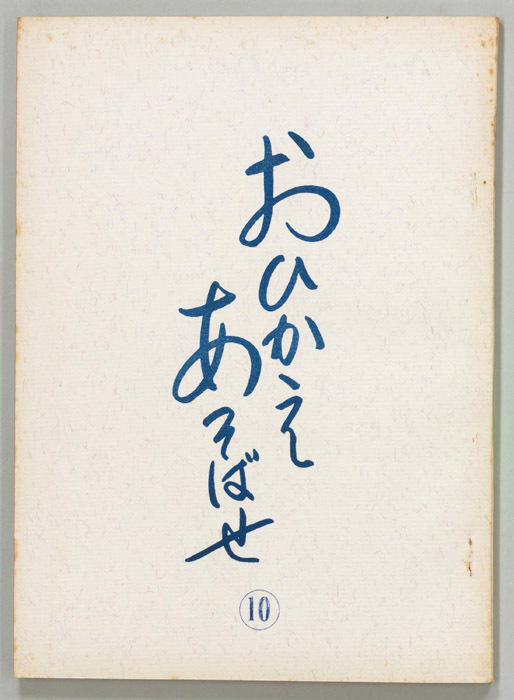 おひかえ
あそばせ
10